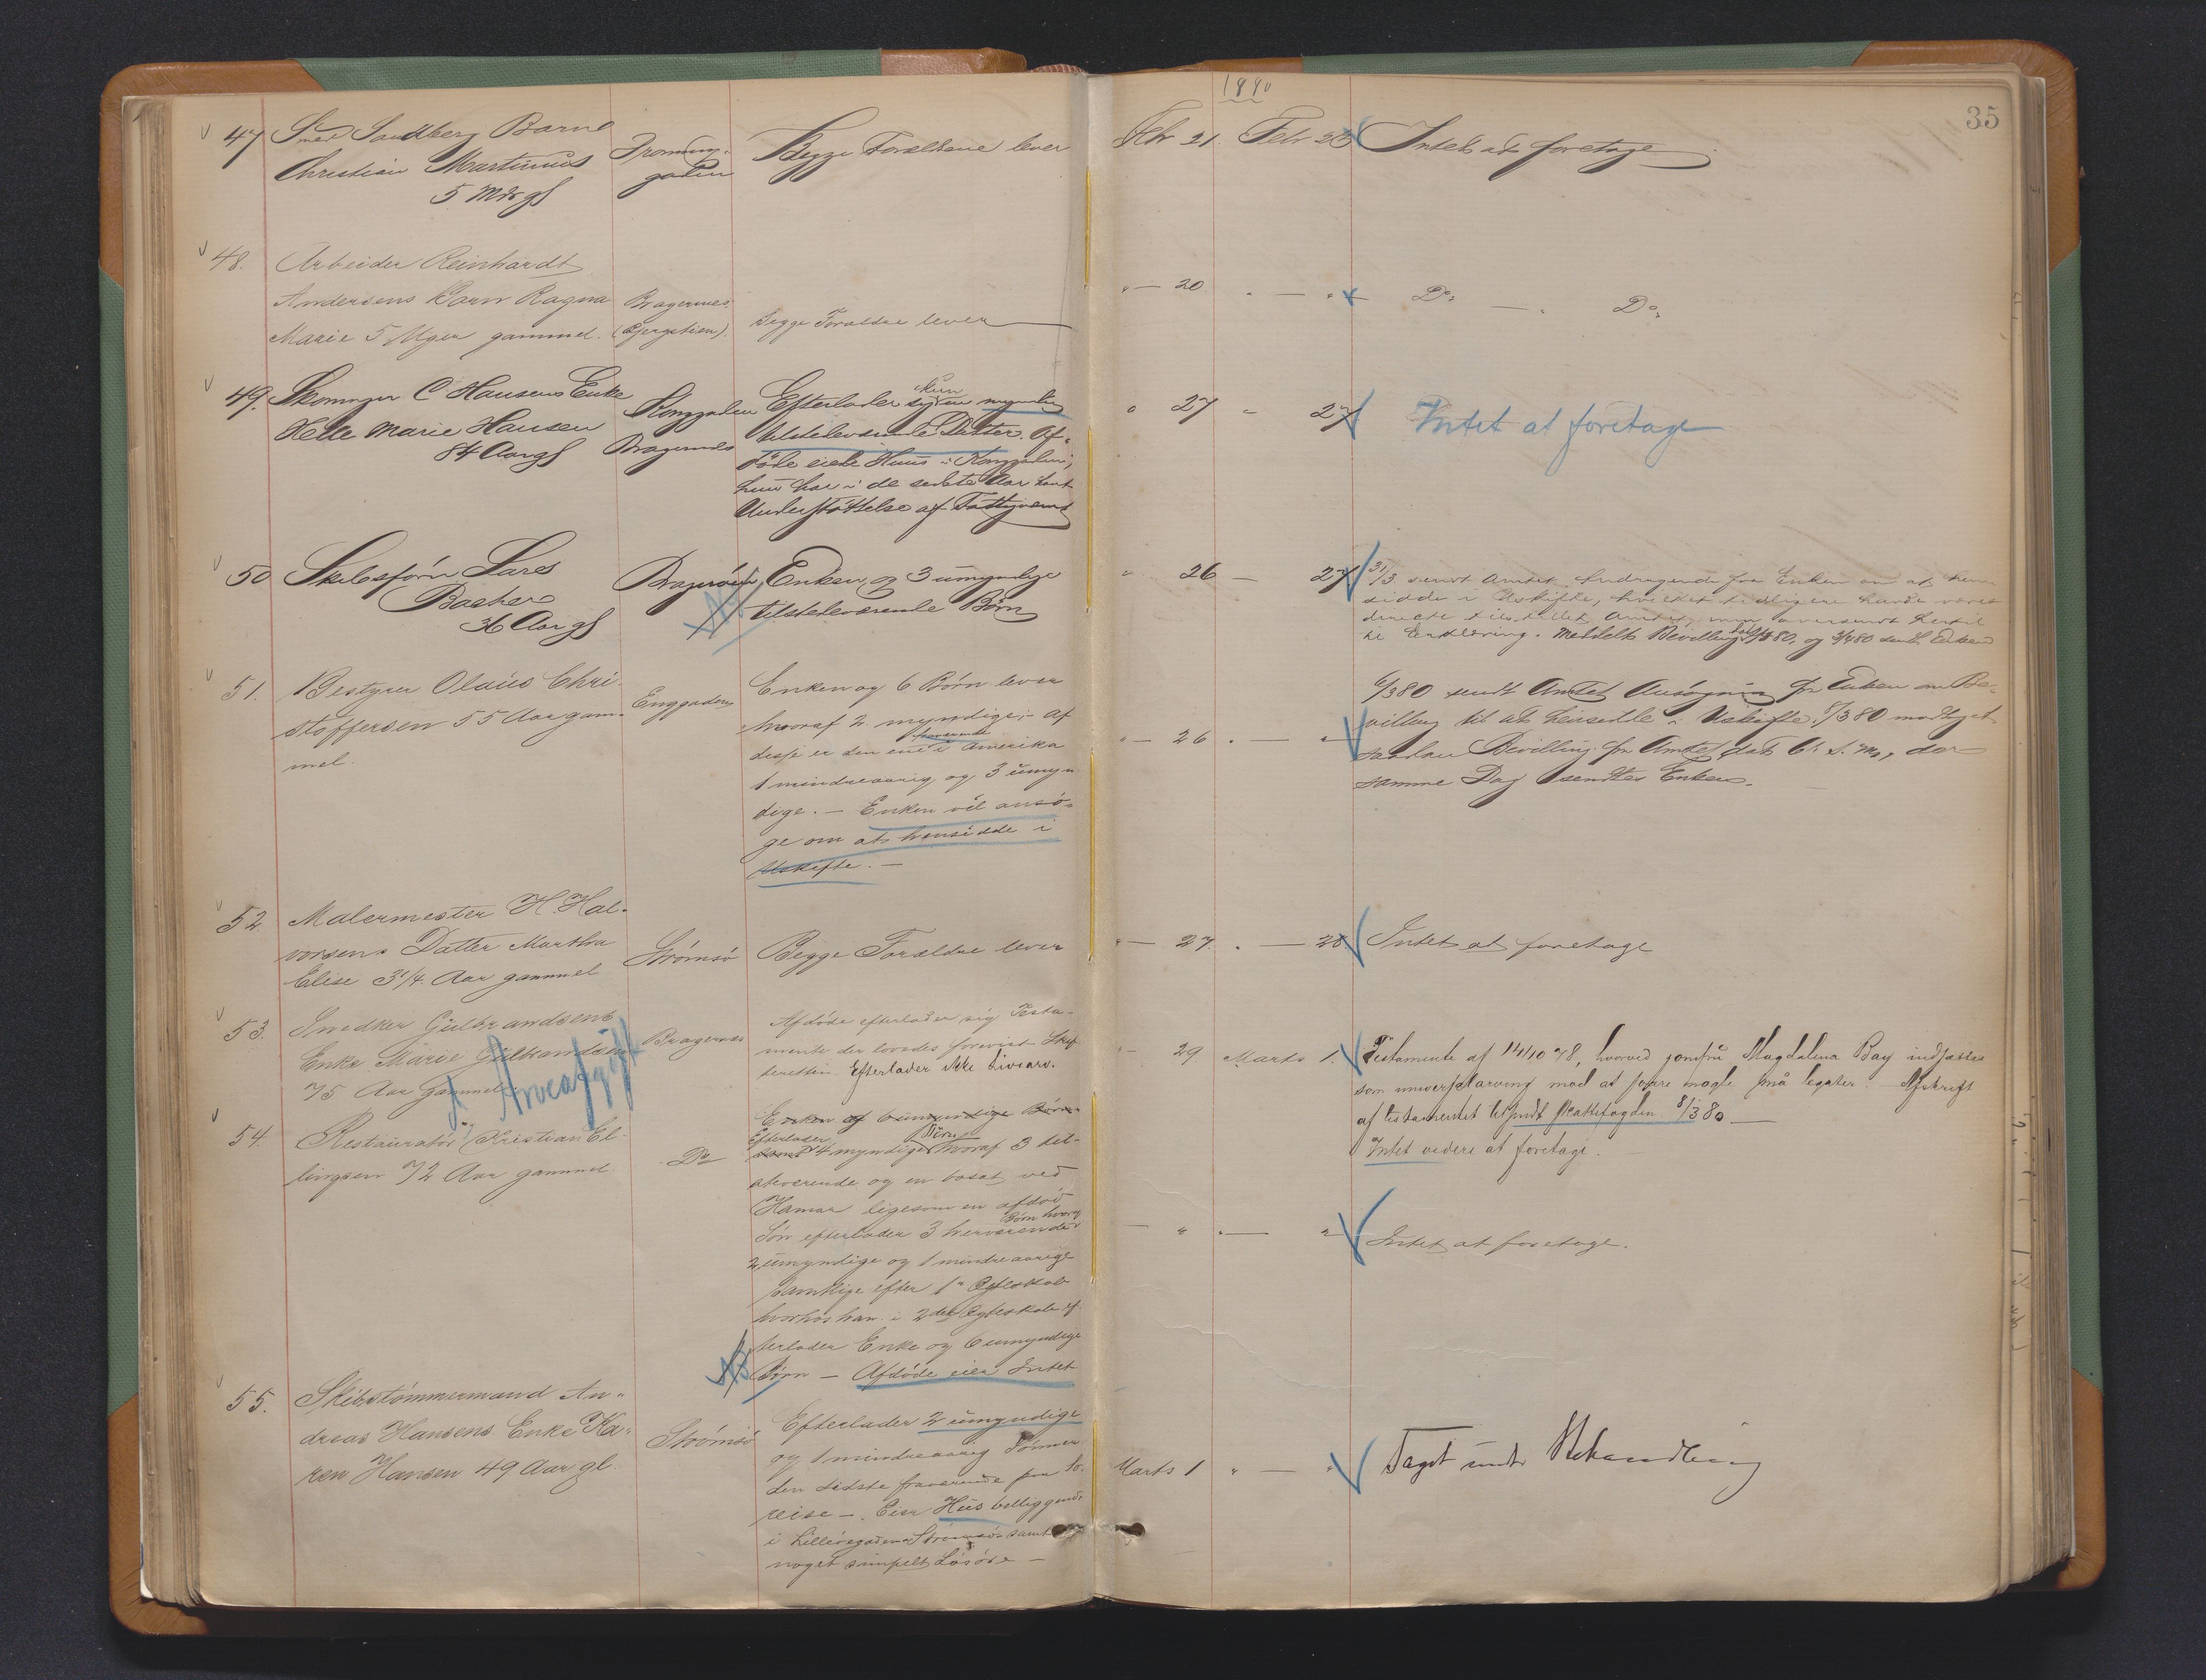 1880
35
47 Smed Sandberg Barn
Christian Martinius
5 Mdr gl
Dronning-
gaden
Begge Forældrene lever
Febr 21. Febr 23
Intet at foretage
48. Arbeider Reinhardt
Andersens Barn Ragna
Marie 5 Uger gammel.
Bragernes
(Bjergstien).
Begge Forældre lever
" — 20 " — "
Do. — . Do.
49. Skomager C Hansens Enke
Helle Marie Hansen
84 Aar gl
Konggaden
Bragernes
kun
Efterlader sig en myndig
tilstedeværende Datter. Af-
døde eiede Huus i Konggaden,
hun har i de sidste Aar havt
Understøttelse af Fattigvæsnet
" 27 " 27
Intet at foretage
50 Skibsfører Lars
Backer
36 Aar gl
Bragerøen
Enken og 3 umyndige
tilstedeværende Børn
" 26 — 27
31/3 sendt Amtet Andragende fra Enken om at hen-
sidde i Uskifte, hvilket tidligere havde været
directe tilstillet Amtet, men oversendt hertil
til Erklæring. Meddelt Bevilling
51. Bestyrer Olaus Chri-
stoffersen 55 Aar gam-
mel.
Enggaden
Enken og 6 Børn lever
hvoraf 2 myndige; - af
fraværende
disse er den ene i Amerika
1 mindreaarig og 3 umyn
dige. — Enken vil ansø-
ge om at hensidde i
Uskifte. —
" — 26 " — "
6/3 80 sendt Amtet Ansøgning fr Enken om Be-
villing til at hensidde i Uskifte. 8/3 80 modtaget
saadan Bevilling fra Amtet, dat. 6. d. M., der
samme Dag sendtes Enken.
52. Malermester H. Hal-
vorsens Datter Martha
Elise 3 1/4 Aar gammel
Strømsø
Begge Forældre lever
" — 27. " — 28
Intet at foretage
53. Snedker Gulbrandsens
Enke Marie Gulbrandsen
75 Aar gammel
Arveafgift
Bragernes
Afdøde efterlader sig Testa-
mente der lovedes forevist Skif
teretten. Efterlader ikke Livsarv.
" — 29. Marts 1.
Testamente af 14/10 78, hvorved jomfru Magdalena Bay indsættes
som universalarving mod at svare nogle små legater. Afskrift
af testamentet tilsendt skattefogden 8/3 80 —
Intet videre at foretage.
54. Restauratør Kristian El-
lingsen 72 Aar gammel
Do
Enken og 6 umyndige Børn
Efterlader Børn
4 myndige hvoraf 3 til-
stedværende og en bosat ved
Hamar ligesom en afdød
Børn hvoraf
Søn efterlader 3 herværende
2 umyndige og 1 mindreaarige
samtlige efter 1te Egteskab
hvorhos han i 2det Egteskab ef
terlader Enke og 6 umyndige
Børn — Afdøde eier Intet
— " " — "
Intet at foretage.
55. Skibstømmermand An-
dreas Hansens Enke Ka-
ren Hansen 49 Aar gl.
Strømsø
Efterlader 2 umyndige
og 1 mindreaarig Sønner
den sidste fraværende paa to
reise —. Eier Hus beliggende
i Lilløregaden Strømsø samt
noget simpelt Løsøre —
Marts 1 " — "
Taget under Behandling